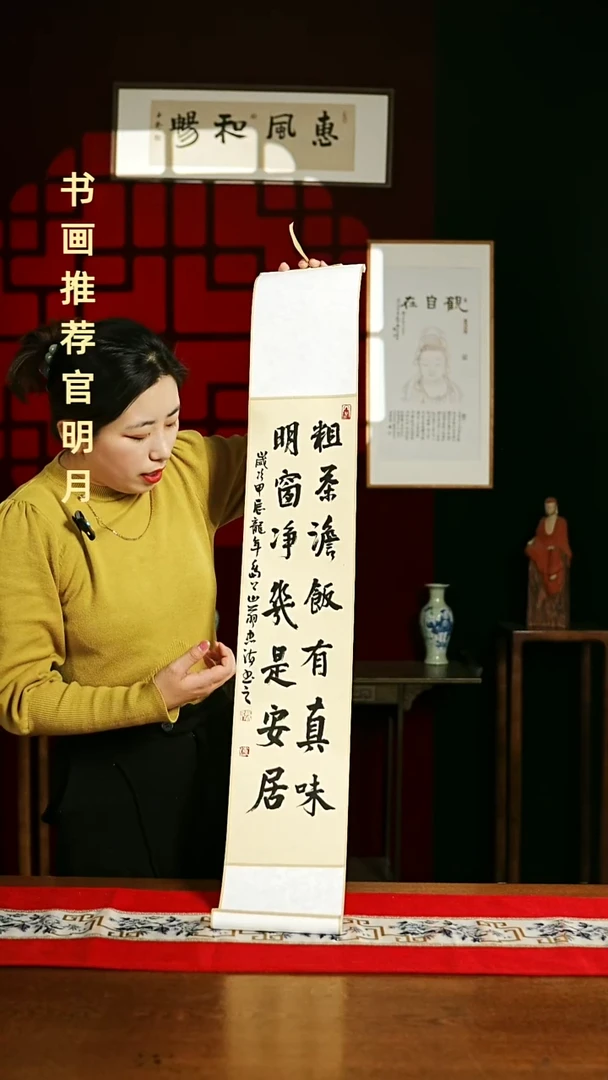 惠風和暢
书画推荐官明月
觀自在
粗茶澹飯有真味
明窗净几是安居
歲次甲辰龍年